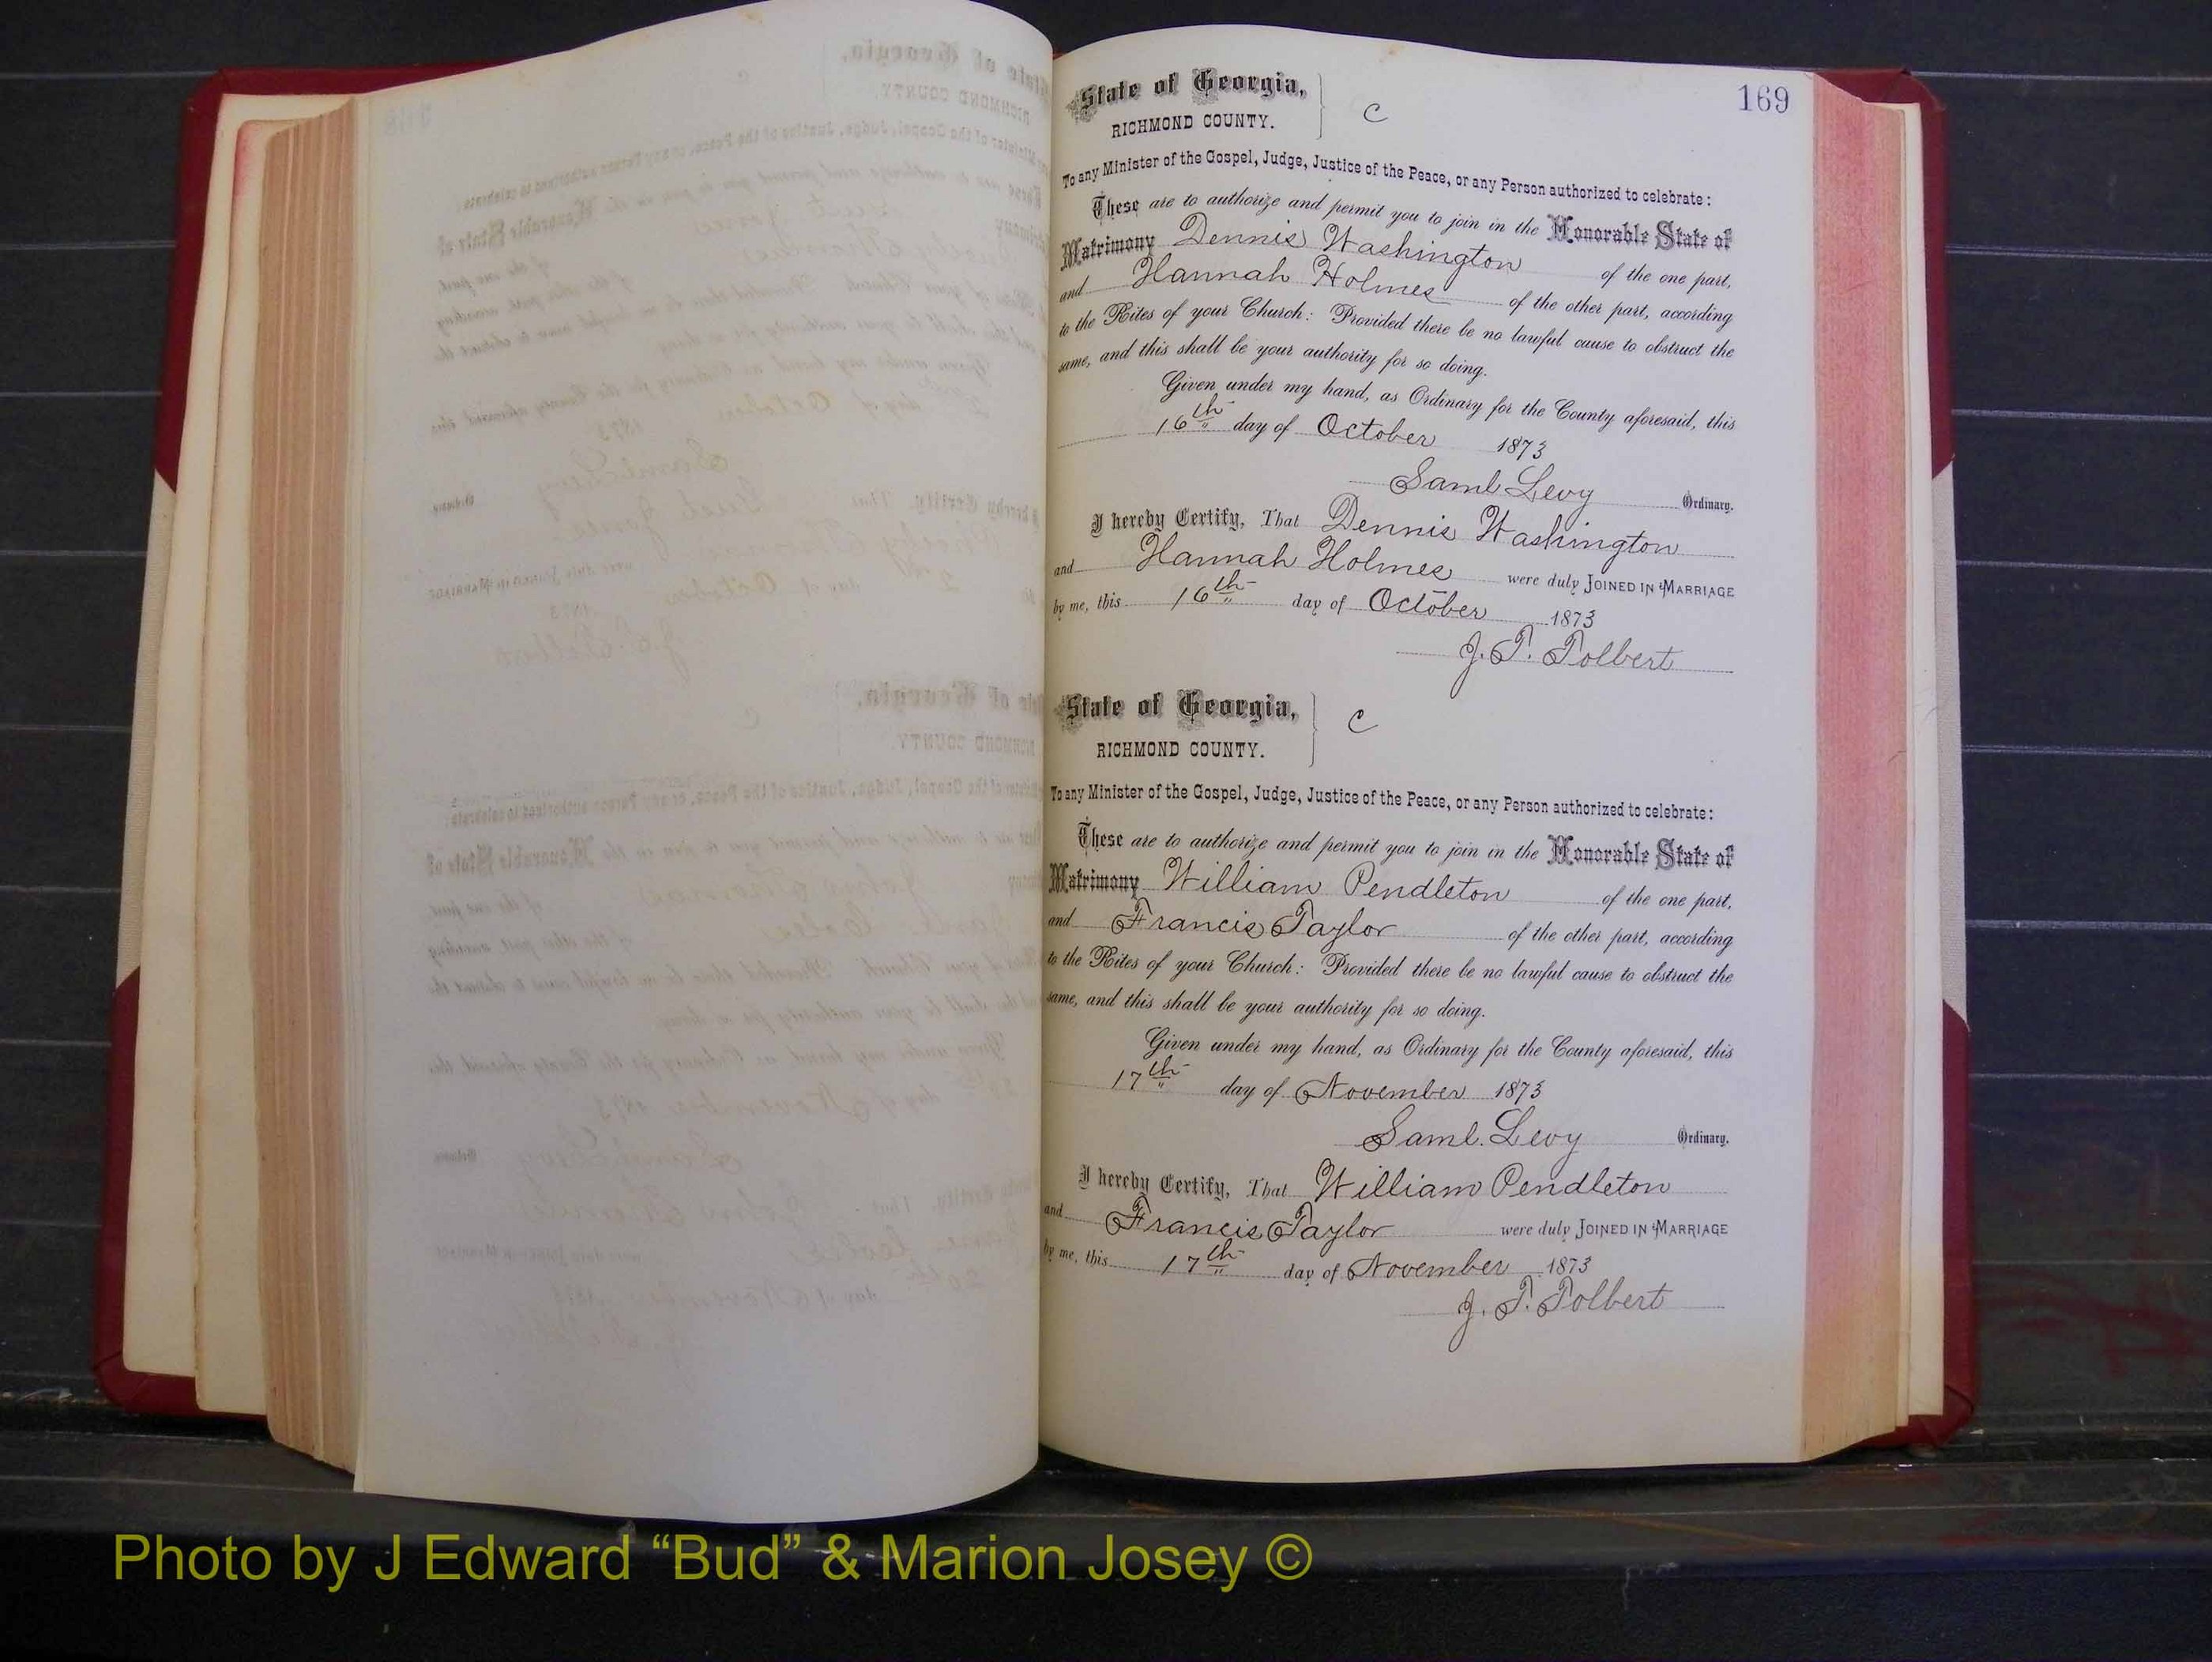 169
State of Georgia,
RICHMOND COUNTY.
C
To any Minister of the Gospel, Judge, Justice of the Peace, or any Person authorized to celebrate:
These are to authorize and permit you to join in the Honorable State of
Matrimony Dennis Washington of the one part,
and Hannah Holmes of the other part, according
to the Rites of your Church: Provided there be no lawful cause to obstruct the
same, and this shall be your authority for so doing.
Given under my hand, as Ordinary for the County aforesaid, this
16th day of October 1873
Saml Levy Ordinary.
I hereby Certify, That Dennis Washington
and Hannah Holmes were duly JOINED IN MARRIAGE
by me, this 16th day of October 1873
J. T. Tolbert
State of Georgia,
RICHMOND COUNTY.
C
To any Minister of the Gospel, Judge, Justice of the Peace, or any Person authorized to celebrate:
These are to authorize and permit you to join in the Honorable State of
Matrimony William Pendleton of the one part,
and Francis Taylor of the other part, according
to the Rites of your Church: Provided there be no lawful cause to obstruct the
same, and this shall be your authority for so doing.
Given under my hand, as Ordinary for the County aforesaid, this
17th day of November 1873
Saml. Levy Ordinary.
I hereby Certify, That William Pendleton
and Francis Taylor were duly JOINED IN MARRIAGE
by me, this 17th day of November 1873
J. T. Tolbert
Photo by J Edward “Bud” & Marion Josey ©